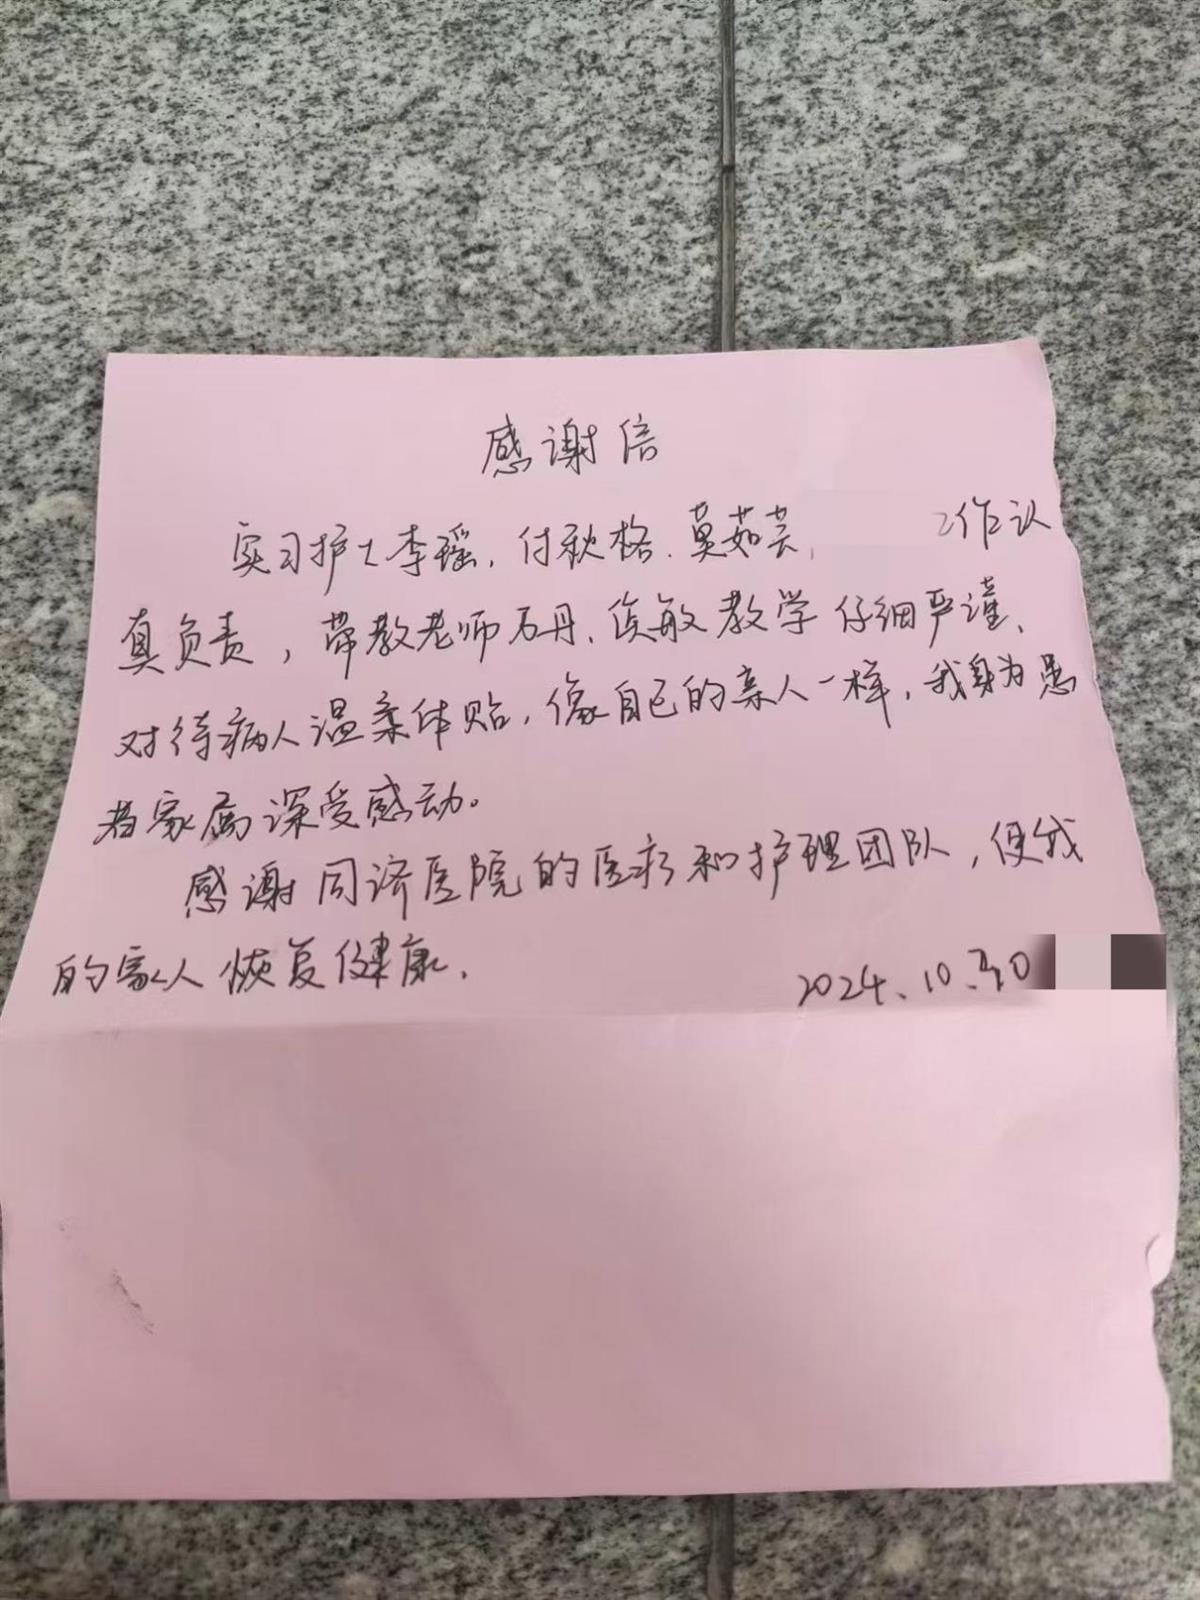 感谢信
实习护士李瑶，付秋格、莫茹芸，工作认
真负责，带教老师石丹、侯敏教学仔细严谨、
对待病人温柔体贴，像自己的亲人一样，我身为患
者家属深受感动。
感谢同济医院的医疗和护理团队，使我
的家人恢复健康.
2024.10.30